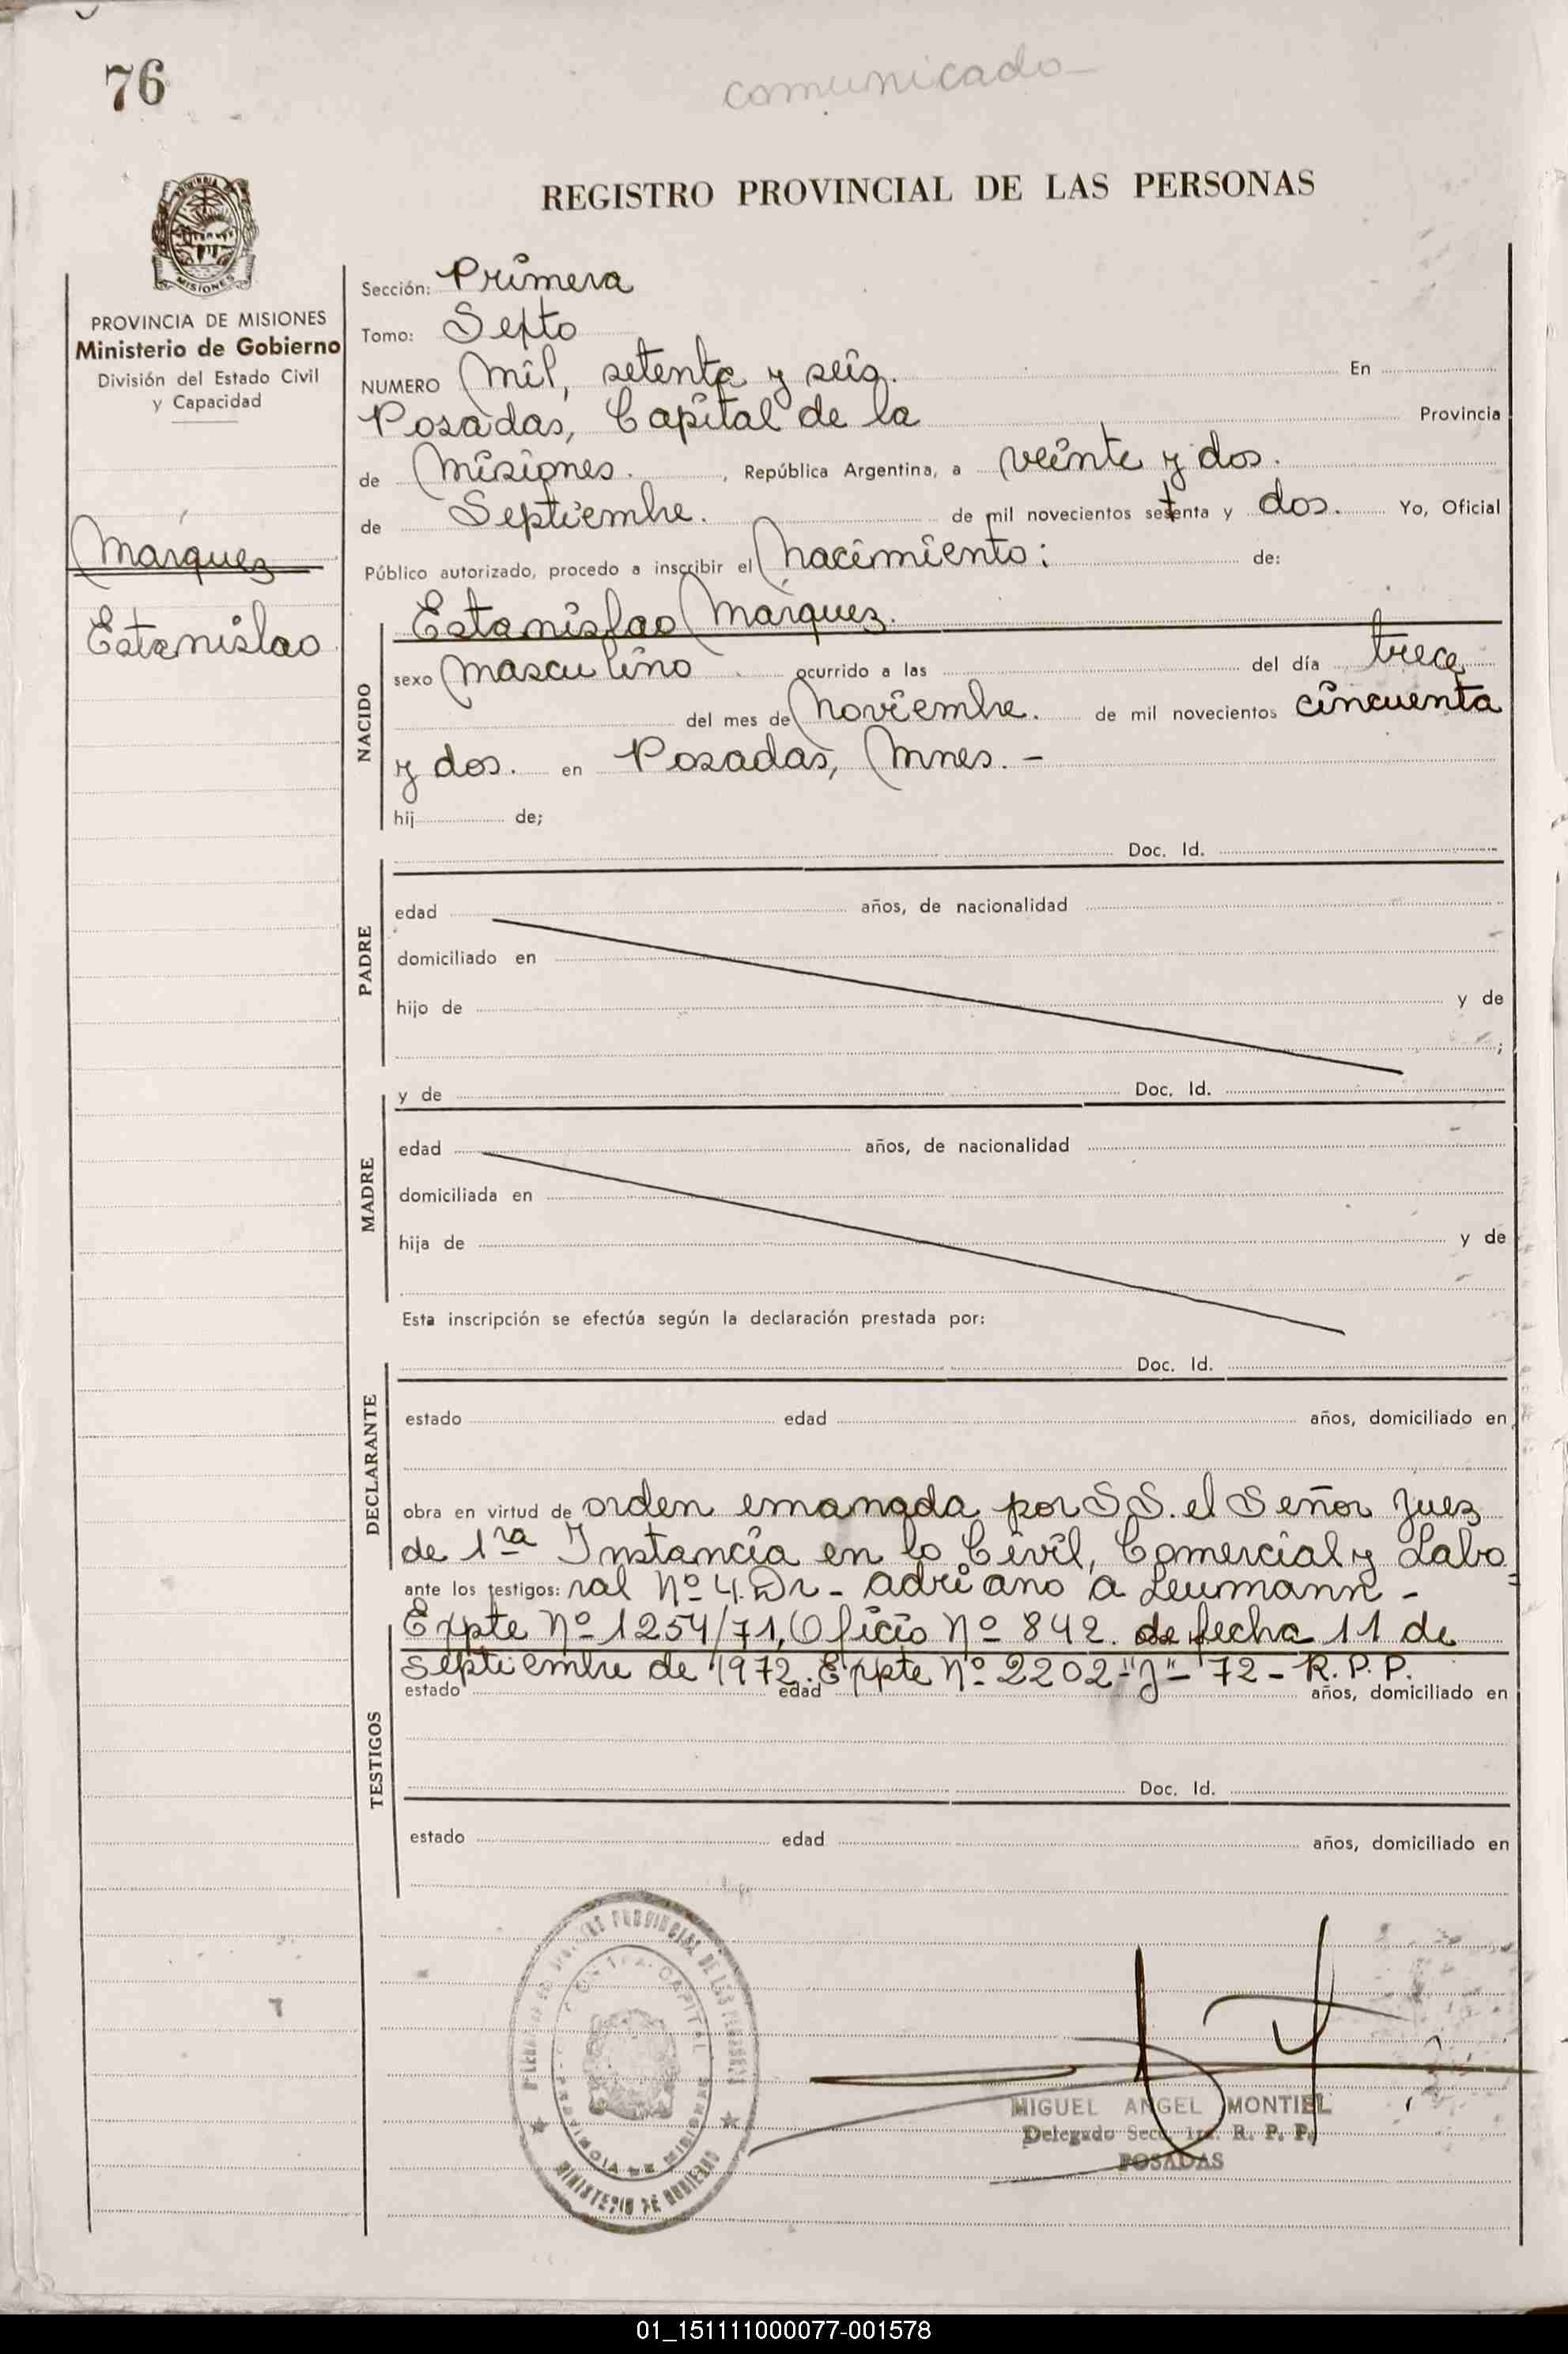 76
comunicado
REGISTRO PROVINCIAL DE LAS PERSONAS
MISIONES
PROVINCIA DE MISIONES
Ministerio de Gobierno
División del Estado Civil
y Capacidad
Marquez
Estanislao
Sección: Primera
Tomo: Septo
NUMERO Mil, setenta y seis. En
Posadas, Capital de la Provincia
de Misiones. , República Argentina, a veinte y dos.
de Septiembre. de mil novecientos setenta y dos. Yo, Oficial
Público autorizado, procedo a inscribir el Nacimiento: de:
Estanislao Marquez.
NACIDO
sexo Masculino ocurrido a las del día trece
del mes de Noviembre. de mil novecientos cincuenta
y dos. en Posadas, Mnes. -
hij de;
PADRE
Doc. Id.
edad años, de nacionalidad
domiciliado en
hijo de y de
;
MADRE
y de Doc. Id.
edad años, de nacionalidad
domiciliada en
hija de y de
Esta inscripción se efectúa según la declaración prestada por:
DECLARANTE
Doc. Id.
estado edad años, domiciliado en
obra en virtud de orden emanada por S S. el Señor Juez
de 1ra Instancia en lo Civil, Comercial y Labo=
ante los testigos: ral Nº 4. Dr - Adriano A Leumann -
Expte Nº 1254/71, Oficio Nº 842. de fecha 11 de
Septiembre de 1972. Expte Nº 2202-"J"- 72 - R. P. P.
TESTIGOS
estado edad años, domiciliado en
Doc. Id.
estado edad años, domiciliado en
PROVINCIAL DE LAS PERSONAS
CAPITAL
PROVINCIA DE MISIONES
MINISTERIO DE GOBIERNO
MIGUEL ANGEL MONTIEL
Delegado Secc. 1ra. R. P. P.
POSADAS
01_151111000077-001578